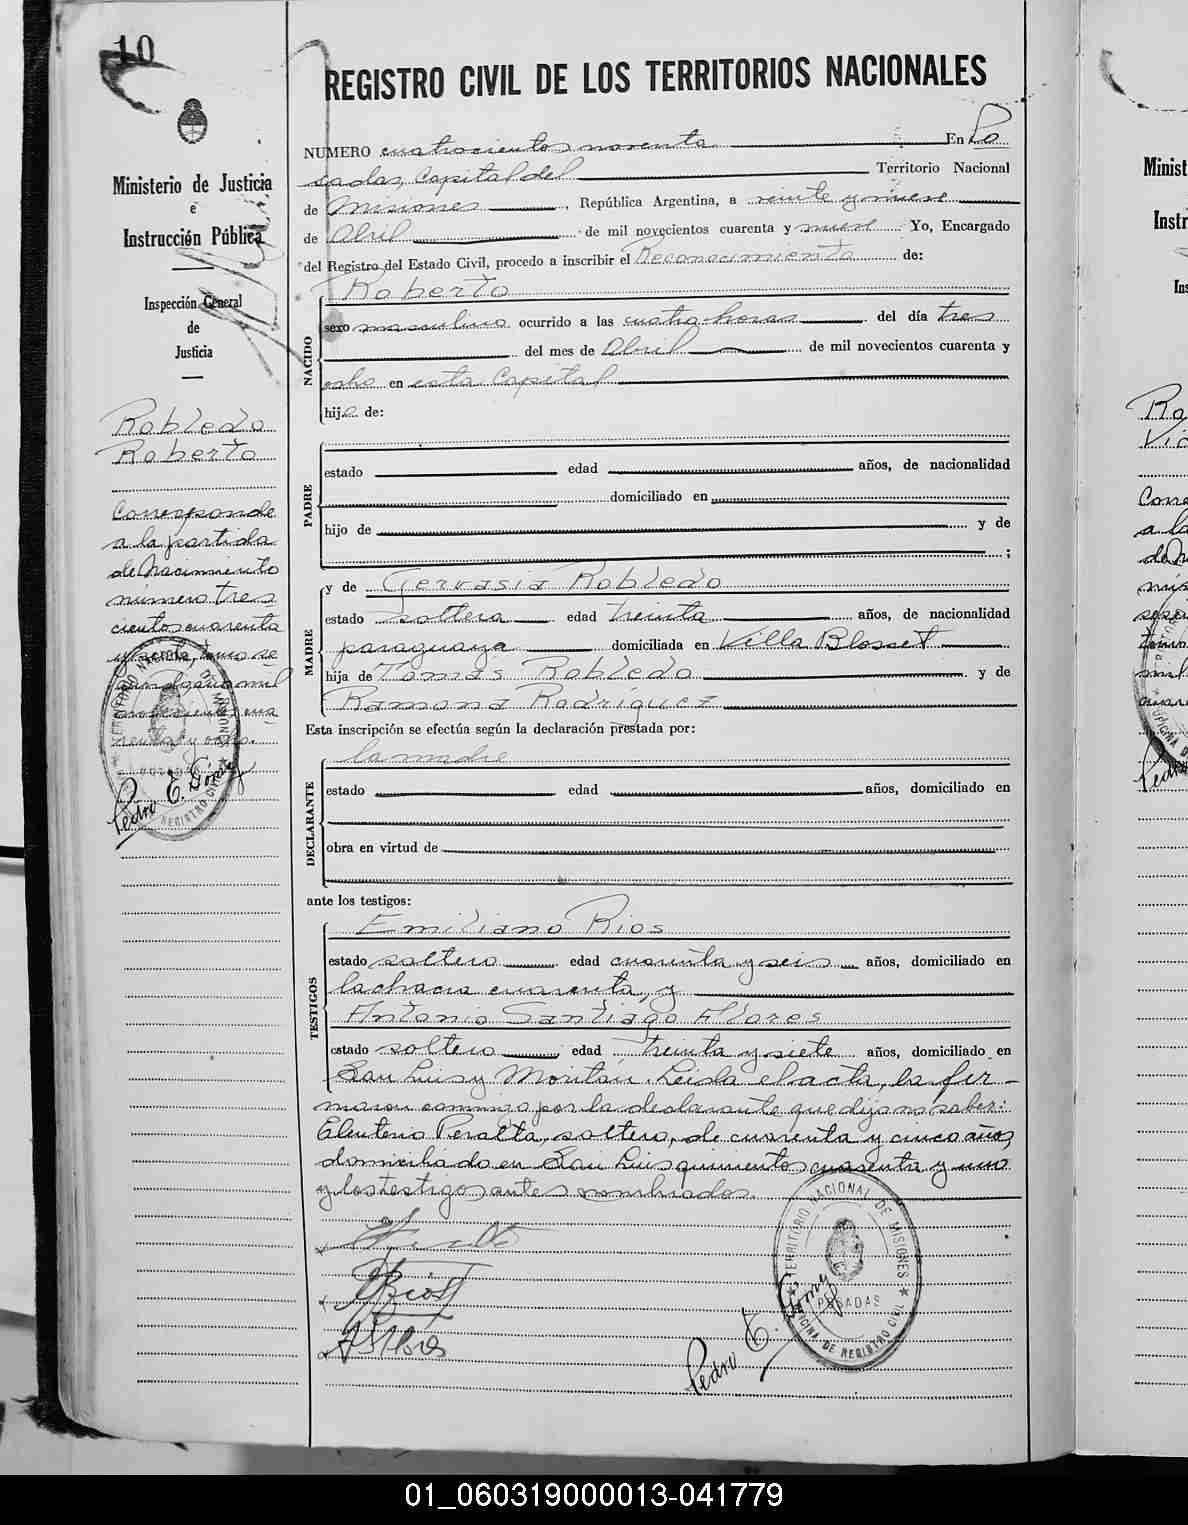 10
REGISTRO CIVIL DE LOS TERRITORIOS NACIONALES
Ministerio de Justicia
e
Instrucción Pública
Inspección General
de
Justicia
Robledo
Roberto
Corresponde
a la partida
de Nacimiento
número tres-
cientos cuarenta
y
mil
novecientos cua
renta y ocho.
Pedro E. Gómez
TERRITORIO NACIONAL DE MISIONES
REGISTRO CIVIL
NUMERO cuatrocientos noventa En Po
sadas, Capital del Territorio Nacional
de Misiones, República Argentina, a veinte y nueve
de Abril de mil novecientos cuarenta y nueve Yo, Encargado
del Registro del Estado Civil, procedo a inscribir el Reconocimiento de:
NACIDO
Roberto
sexo masculino ocurrido a las cuatro horas del día tres
del mes de Abril de mil novecientos cuarenta y
ocho en esta Capital
hijo de:
PADRE
estado edad años, de nacionalidad
domiciliado en
hijo de y de
;
MADRE
y de Gervasia Robledo
estado soltera edad treinta años, de nacionalidad
paraguaya domiciliada en Villa Blosset
hija de Tomás Robledo y de
Ramona Rodríguez
Esta inscripción se efectúa según la declaración prestada por:
DECLARANTE
la madre
estado edad años, domiciliado en
obra en virtud de
ante los testigos:
TESTIGOS
Emiliano Rios
estado soltero edad cuarenta y seis años, domiciliado en
la chacra cuarenta, y
Antonio Santiago Flores
estado soltero edad treinta y siete años, domiciliado en
San Luis y Moritán. Leída el acta, la fir-
maron conmigo por la declarante que dijo no saber:
Eleuterio Peralta, soltero, de cuarenta y cinco años,
domiciliado en San Luis quinientos cuarenta y uno
y los testigos antes nombrados.
E Rios
A S Flores
Pedro E. Gómez
TERRITORIO NACIONAL DE MISIONES
POSADAS
OFICINA DE REGISTRO CIVIL
Minist
Instr
Ins
Ro
Vic
Corre
a la
de N
Pedro
01_060319000013-041779